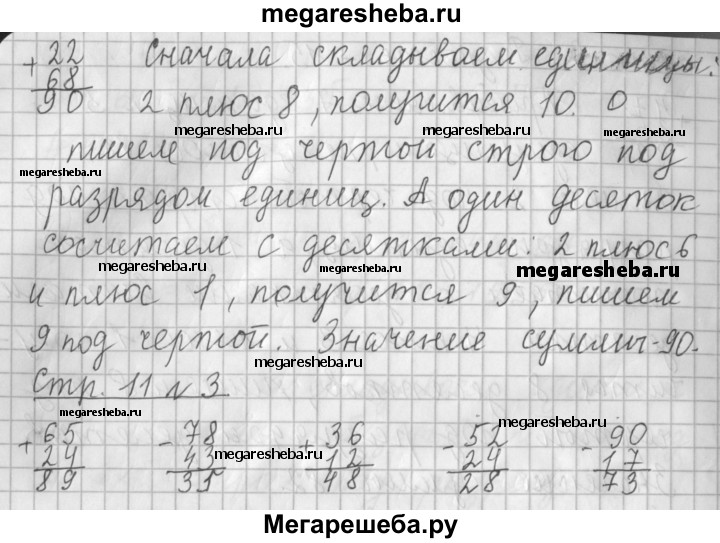 megaresheba.ru
+ 22 Сначала складываем единицы:
68
90 2 плюс 8, получится 10. 0
megaresheba.ru megaresheba.ru megaresheba.ru
пишем под чертой строго под
megaresheba.ru
разрядом единиц. А один десяток
сосчитаем с десятками: 2 плюс 6
megaresheba.ru megaresheba.ru megaresheba.ru
и плюс 1, получится 9, пишем
9 под чертой. Значение суммы-90.
megaresheba.ru
Стр. 11 №3
megaresheba.ru megaresheba.ru
+ 65 - 78 + 36 - 52 - 90
24 43 12 24 17
megaresheba.ru megaresheba.ru
89 35 48 28 73
Мегарешеба.ру